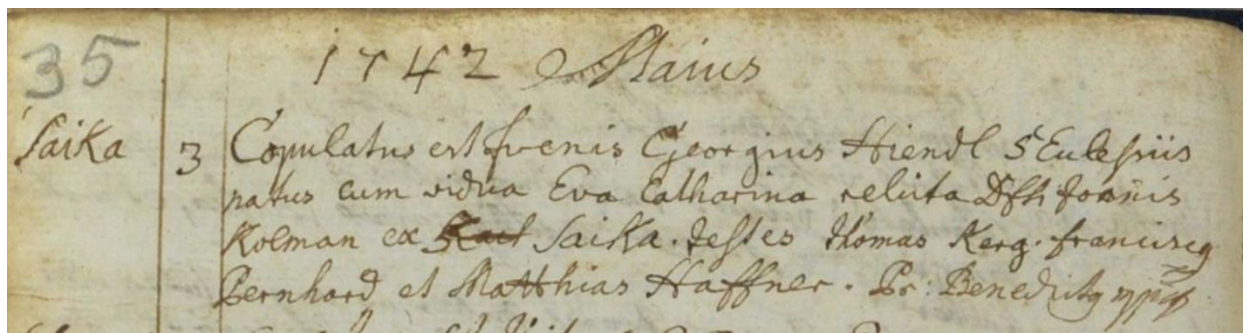 35
1742 Maius
Saika 3 Copulatus est Juvenis Georgius Hiendl
natus cum vidua Eva Catharina relicta Dfti Joanis
Kolman ex Saika. Testes Thomas Kerg. Franciscg
Bernhard et Matthias Haffner. Pr: Benedictg